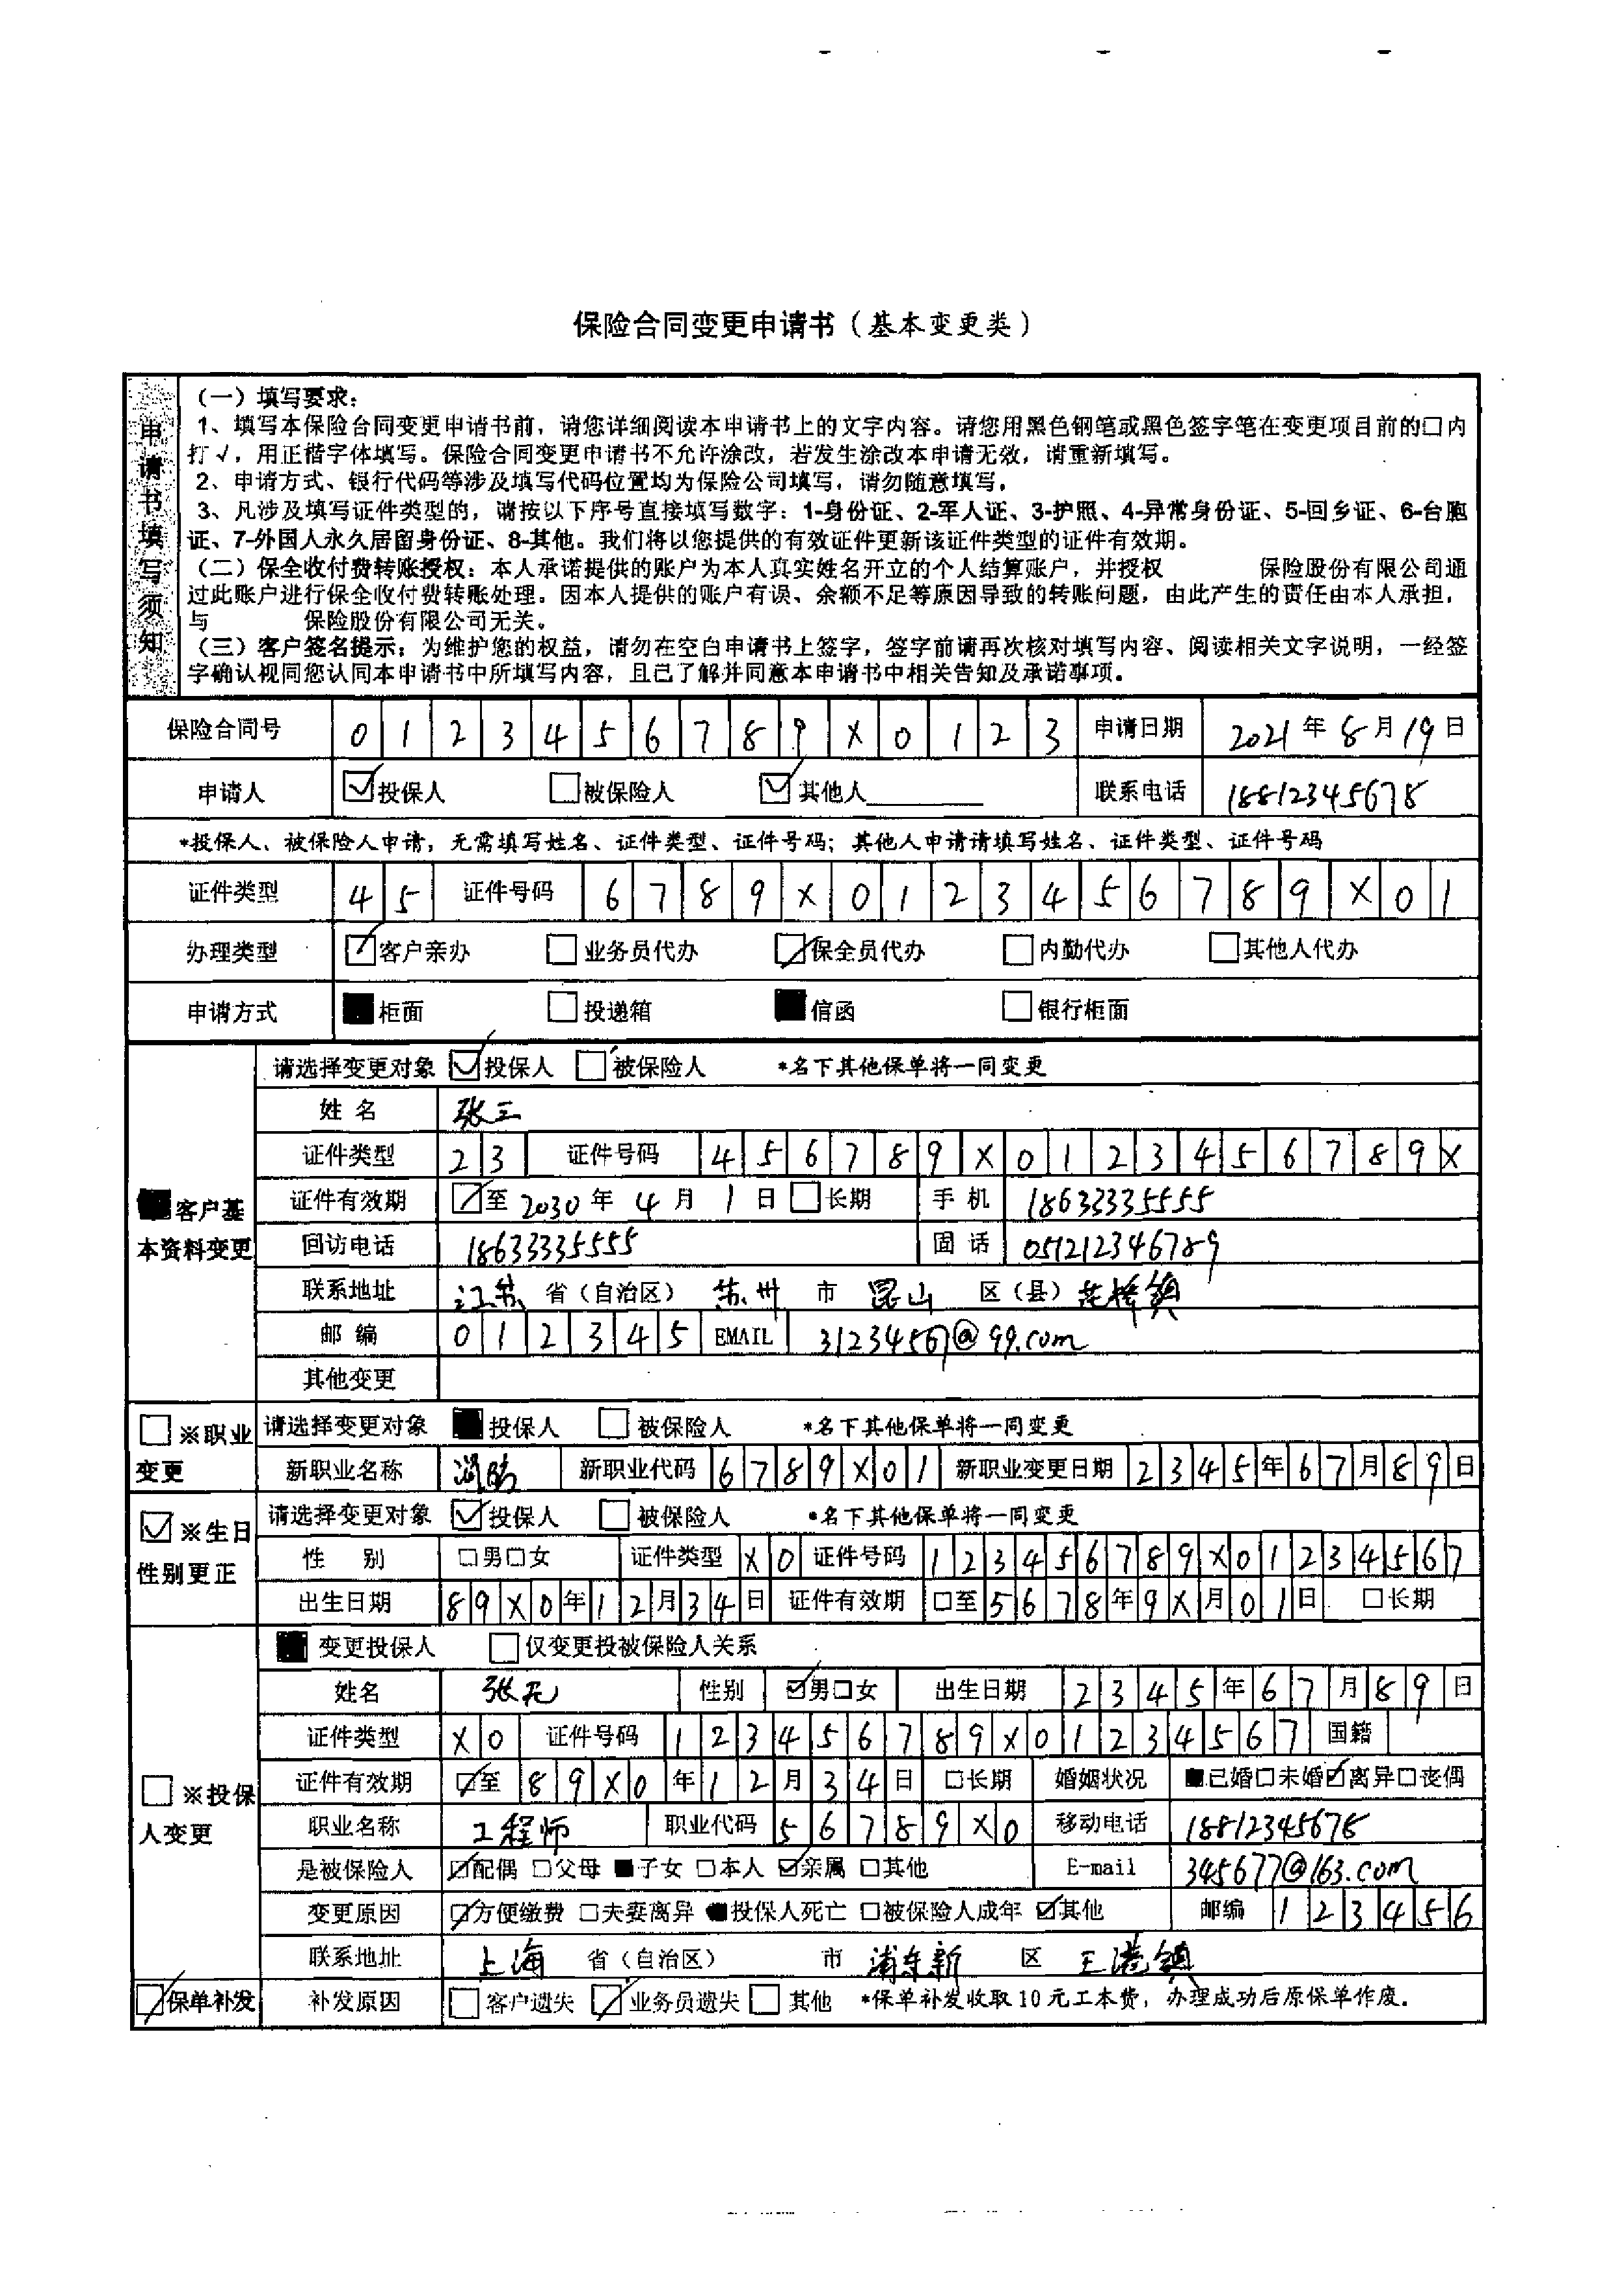 保险合同变更申请书（基本变更类）
申请书填写须知
（一）填写要求：
1、填写本保险合同变更申请书前，请您详细阅读本申请书上的文字内容。请您用黑色钢笔或黑色签字笔在变更项目前的□内
打√，用正楷字体填写。保险合同变更申请书不允许涂改，若发生涂改本申请无效，请重新填写。
2、申请方式、银行代码等涉及填写代码位置均为保险公司填写，请勿随意填写。
3、凡涉及填写证件类型的，请按以下序号直接填写数字：1-身份证、2-军人证、3-护照、4-异常身份证、5-回乡证、6-台胞
证、7-外国人永久居留身份证、8-其他。我们将以您提供的有效证件更新该证件类型的证件有效期。
（二）保全收付费转账授权：本人承诺提供的账户为本人真实姓名开立的个人结算账户，并授权 保险股份有限公司通
过此账户进行保全收付费转账处理。因本人提供的账户有误、余额不足等原因导致的转账问题，由此产生的责任由本人承担，
与 保险股份有限公司无关。
（三）客户签名提示：为维护您的权益，请勿在空白申请书上签字，签字前请再次核对填写内容、阅读相关文字说明，一经签
字确认视同您认同本申请书中所填写内容，且已了解并同意本申请书中相关告知及承诺事项。
保险合同号 0 1 2 3 4 5 6 7 8 9 X 0 1 2 3 申请日期 2021 年 8 月 19 日
申请人 ☑投保人 □被保险人 ☑其他人 联系电话 18812345678
*投保人、被保险人申请，无需填写姓名、证件类型、证件号码；其他人申请请填写姓名、证件类型、证件号码
证件类型 4 5 证件号码 6 7 8 9 X 0 1 2 3 4 5 6 7 8 9 X 0 1
办理类型 ☑客户亲办 □业务员代办 ☑保全员代办 □内勤代办 □其他人代办
申请方式 ■柜面 □投递箱 ■信函 □银行柜面
■客户基本资料变更
请选择变更对象 ☑投保人 □被保险人 *名下其他保单将一同变更
姓名 张三
证件类型 2 3 证件号码 4 5 6 7 8 9 X 0 1 2 3 4 5 6 7 8 9 X
证件有效期 ☑至 2030 年 4 月 1 日 □长期 手机 18633335555
回访电话 18633335555 固话 051212346789
联系地址 江苏 省（自治区） 苏州 市 昆山 区（县） 花桥镇
邮编 0 1 2 3 4 5 EMAIL 31234567@99.com
其他变更
□※职业变更
请选择变更对象 ■投保人 □被保险人 *名下其他保单将一同变更
新职业名称 新职业代码 6 7 8 9 X 0 1 新职业变更日期 2 3 4 5 年 6 7 月 8 9 日
☑※生日性别更正
请选择变更对象 ☑投保人 □被保险人 *名下其他保单将一同变更
性别 □男□女 证件类型 X 0 证件号码 1 2 3 4 5 6 7 8 9 X 0 1 2 3 4 5 6 7
出生日期 8 9 X 0 年 1 2 月 3 4 日 证件有效期 □至 5 6 7 8 年 9 X 月 0 1 日 □长期
□※投保人变更
■变更投保人 □仅变更投被保险人关系
姓名 张无 性别 ☑男□女 出生日期 2 3 4 5 年 6 7 月 8 9 日
证件类型 X 0 证件号码 1 2 3 4 5 6 7 8 9 X 0 1 2 3 4 5 6 7 国籍
证件有效期 ☑至 8 9 X 0 年 1 2 月 3 4 日 □长期 婚姻状况 ■已婚□未婚☑离异□丧偶
职业名称 工程师 职业代码 5 6 7 8 9 X 0 移动电话 18812345678
是被保险人 ☑配偶 □父母 ■子女 □本人 ☑亲属 □其他 E-mail 345677@163.com
变更原因 ☑方便缴费 □夫妻离异 ■投保人死亡 □被保险人成年 ☑其他 邮编 1 2 3 4 5 6
联系地址 上海 省（自治区） 市 浦东新 区 王港镇
☑保单补发 补发原因 □客户遗失 ☑业务员遗失 □其他 *保单补发收取10元工本费，办理成功后原保单作废。